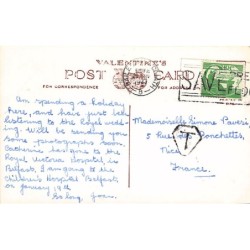 VALENTINE'S
POST CARD
FOR CORRESPONDENCE
FOR ADDRESS
SAVE
T
Am spending a holiday
here, and have just been
listening to the Royal wed-
ding. Will be sending you
some photographs soon.
Catherine has gone to the
Royal Victoria Hospital, in
Belfast, I am going to the
Children's Hospital Belfast,
on January 19th.
So long Jean.
Mademoiselle Simone Paverie
5 Rue des Ponchettes,
Nice
France.